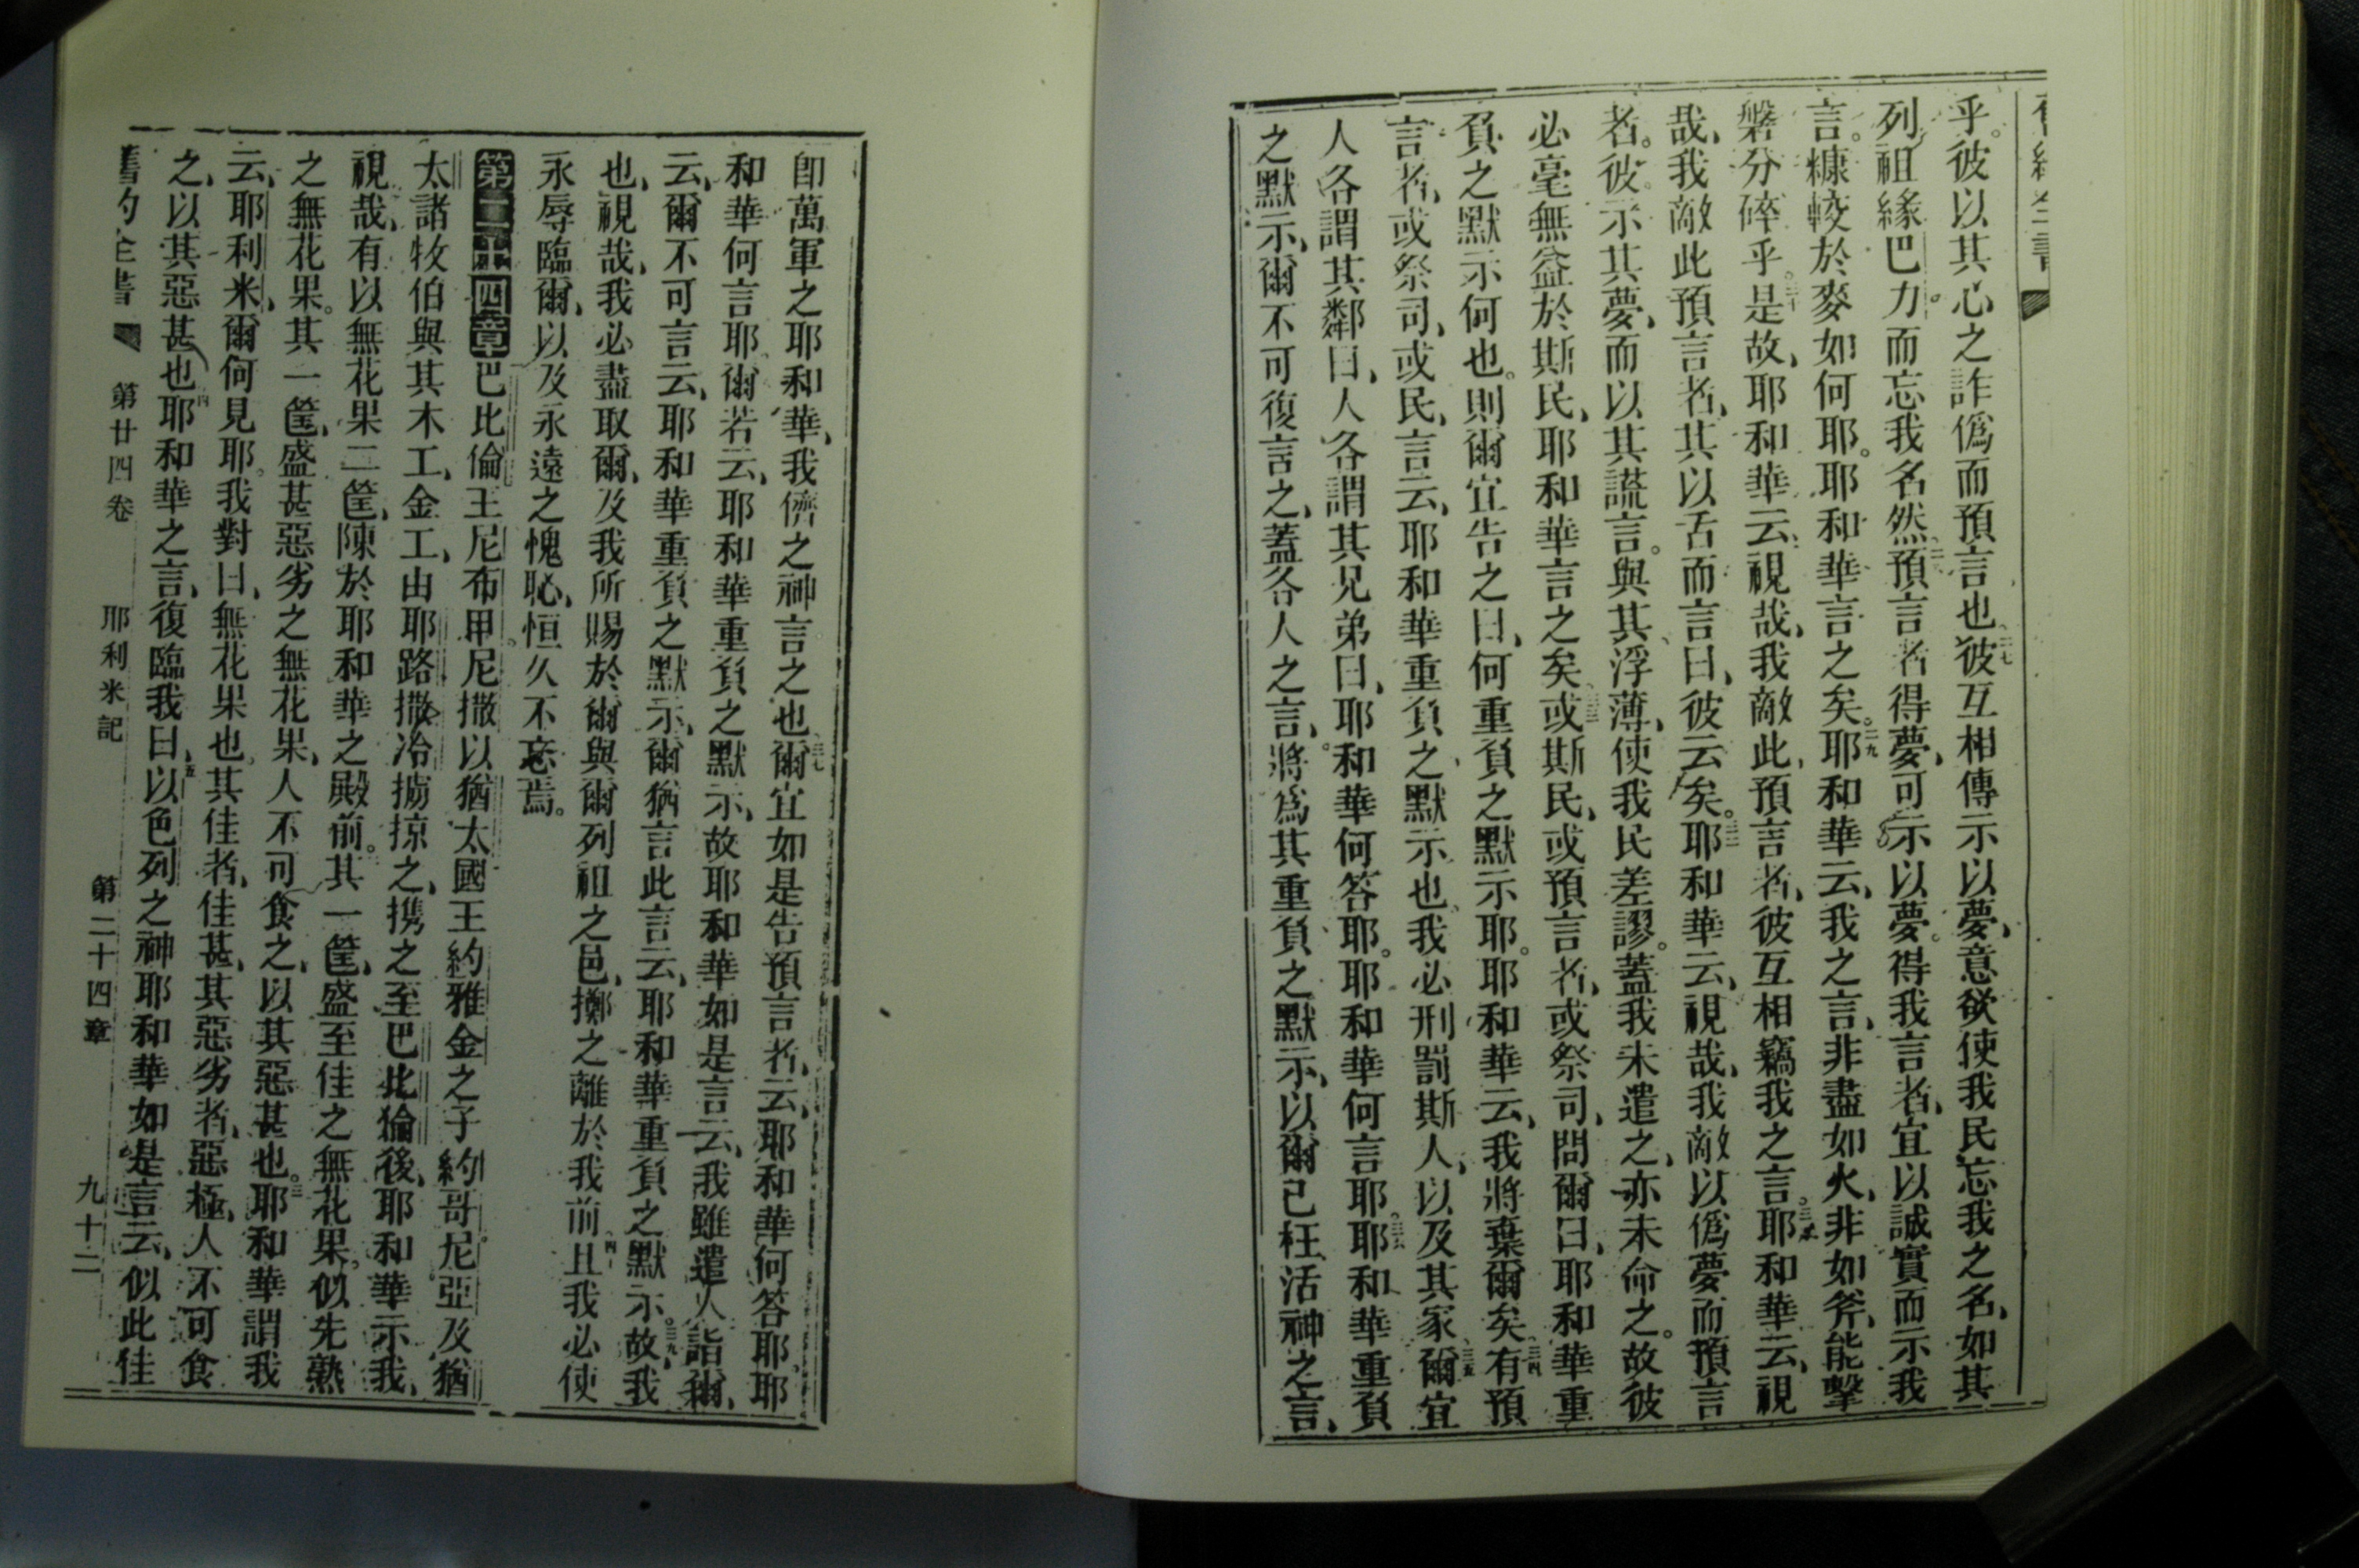 乎。彼以其心之詐僞而預言也。二七彼互相傳示以夢、意欲使我民忘我之名、如其
列祖緣巴力而忘我名然。二八預言者得夢、可示以夢。得我言者、宜以誠實而示我
言。糠較於麥如何耶。耶和華言之矣。二九耶和華云、我之言、非盡如火、非如斧、能擊
磐分碎乎。三十是故、耶和華云、視哉、我敵此預言者、彼互相竊我之言。三一耶和華云、視
哉、我敵此預言者、其以舌而言曰、彼云矣。三二耶和華云、視哉、我敵以僞夢而預言
者。彼示其夢、而以其謊言。與其浮薄、使我民差謬。蓋我未遣之、亦未命之。故彼
必毫無益於斯民、耶和華言之矣。三三或斯民、或預言者、或祭司、問爾曰、耶和華重
負之默示何也。則爾宜告之曰、何重負之默示耶。耶和華云、我將棄爾矣。三四有預
言者、或祭司、或民、言云、耶和華重負之默示也。我必刑罰斯人、以及其家。三五爾宜
人各謂其鄰曰、人各謂其兄弟曰、耶和華何答耶。耶和華何言耶。三六耶和華重負
之默示、爾不可復言之、蓋各人之言、將爲其重負之默示、以爾已枉活神之言、
卽萬軍之耶和華、我儕之神言之也。三七爾宜如是告預言者、云、耶和華何答耶、耶
和華何言耶。爾若云、耶和華重負之默示、故耶和華如是言云、我雖遣人詣爾、
云、爾不可言云、耶和華重負之默示、爾猶言此言云、耶和華重負之默示。三九故、我
也、視哉、我必盡取爾、及我所賜於爾與爾列祖之邑、擲之離於我前。四十且我必使
永辱臨爾、以及永遠之愧恥、恒久不忘焉。
第二十四章巴比倫王尼布甲尼撒以猶太國王約雅金之子約哥尼亞及猶
太諸牧伯與其木工、金工、由耶路撒冷擄掠之、携之至巴比倫後、耶和華示我、
視哉、有以無花果二筐、陳於耶和華之殿前。其一筐、盛至佳之無花果。似先熟
之無花果。其一筐、盛甚惡劣之無花果、人不可食之、以其惡甚也。三耶和華謂我
云、耶利米、爾何見耶。我對曰、無花果也。其佳者、佳甚、其惡劣者、惡極、人不可食
之、以其惡甚也。四耶和華之言、復臨我曰、五以色列之神耶和華如是言云、似此佳
舊約全書 第廿四卷 耶利米記 第二十四章 九十二